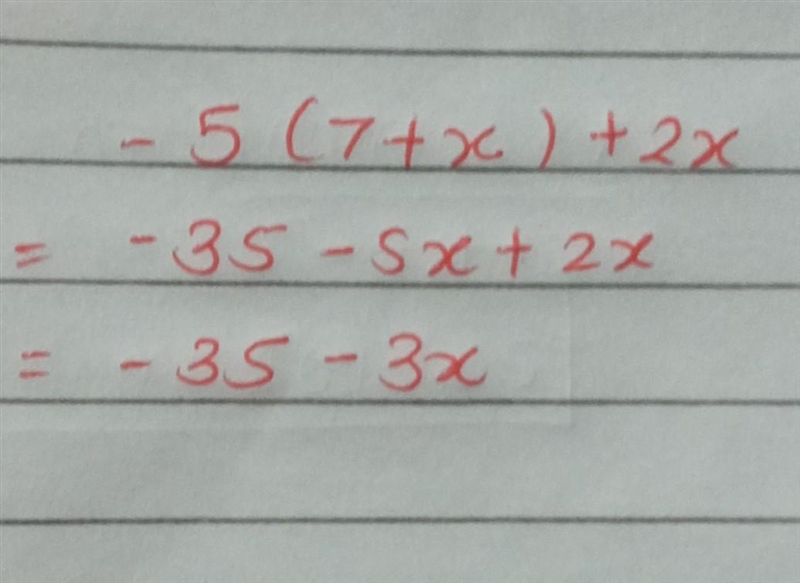 - 5 (7 + x) + 2x
= - 35 - 5x + 2x
= - 35 - 3x